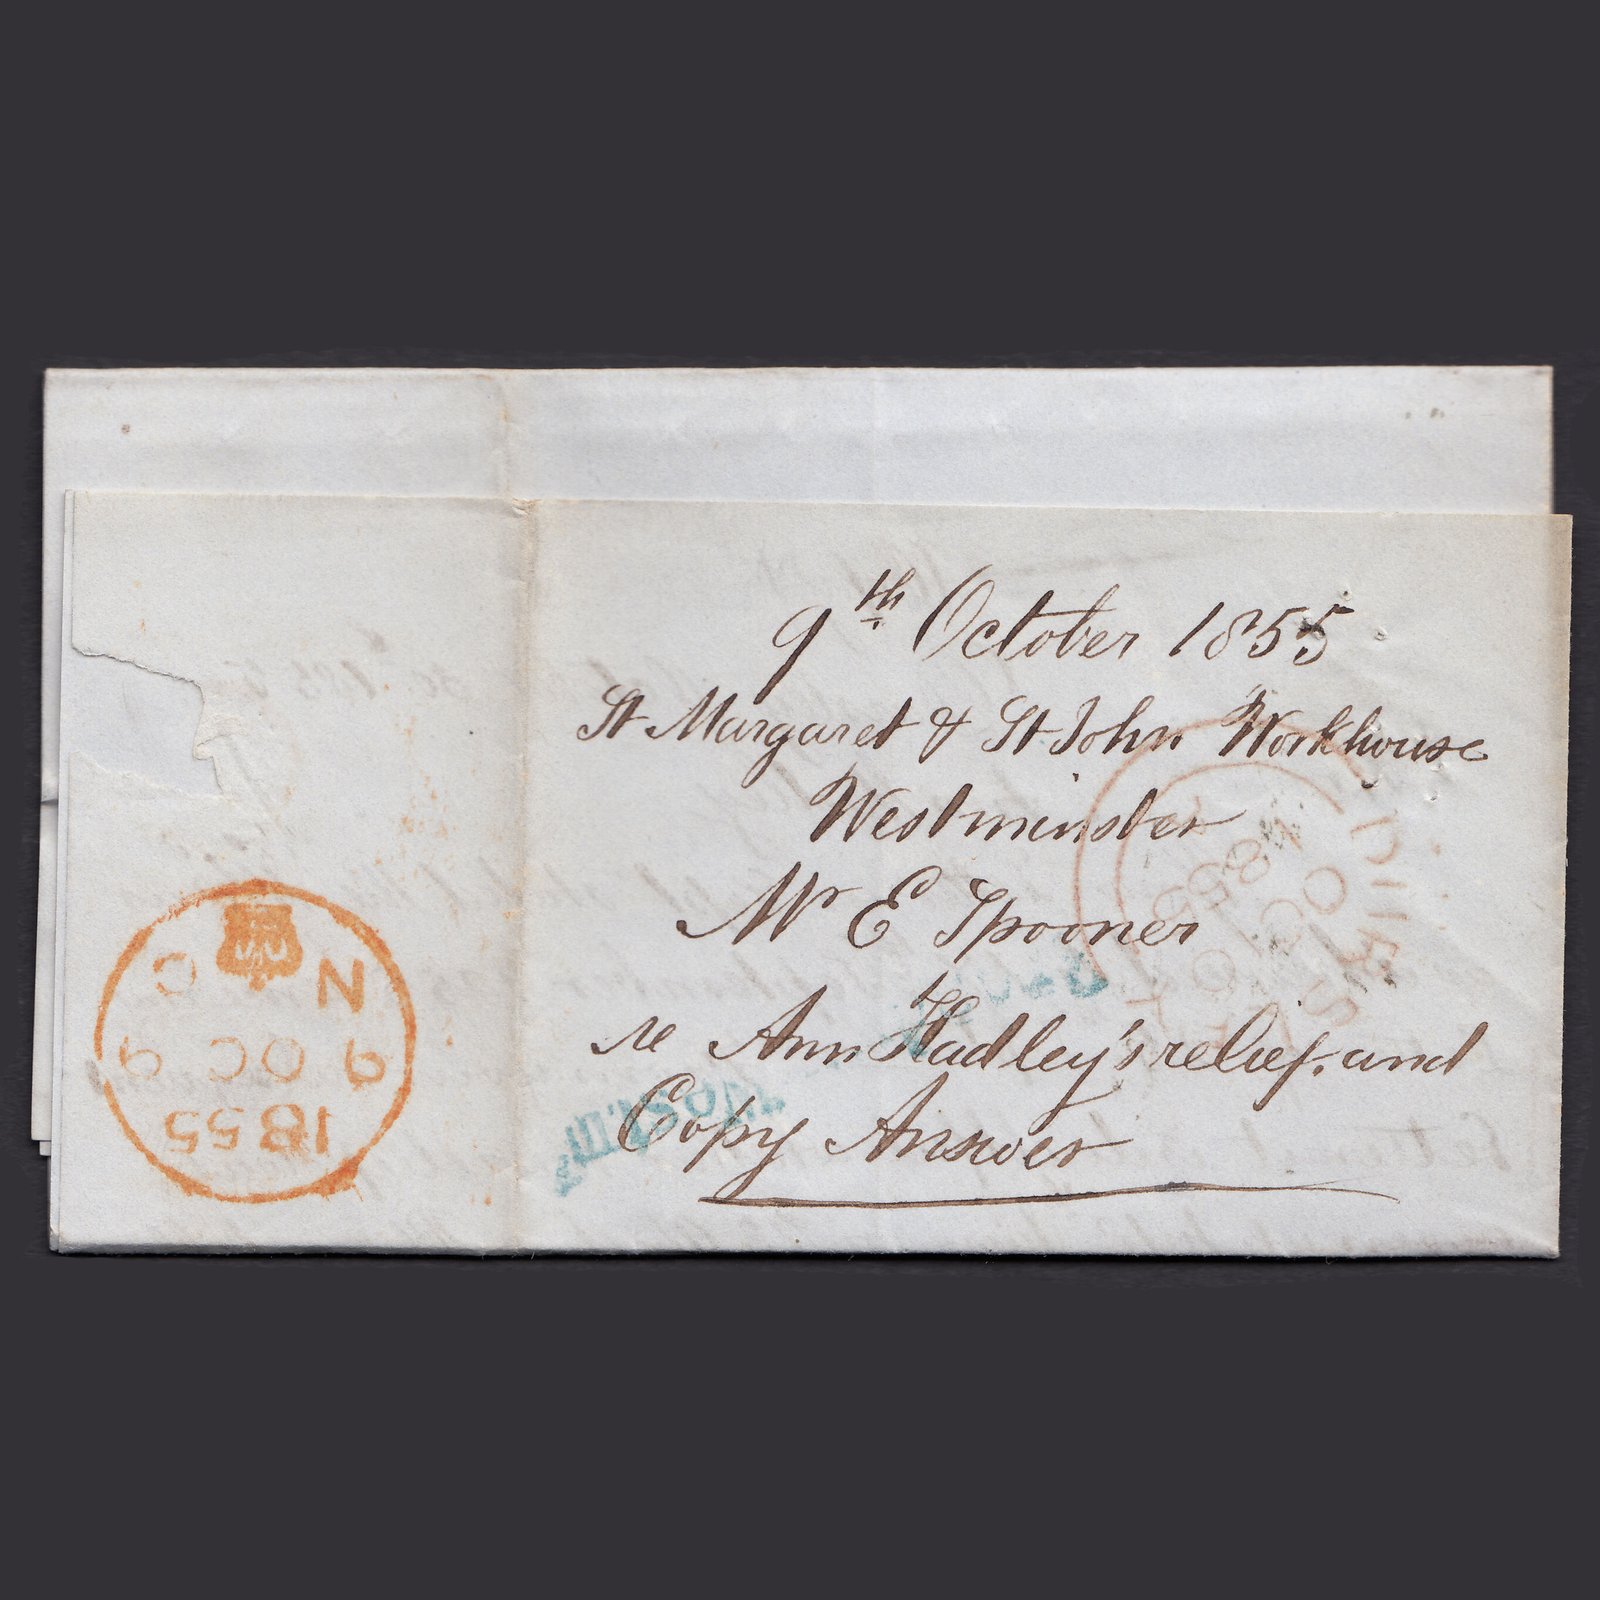 9th October 1855
St Margaret & St John Workhouse
Westminster
Mr E Spooner
re Ann Hadley's relief. and
Copy Answer
N C
9 OC 9
1855
OC
1855